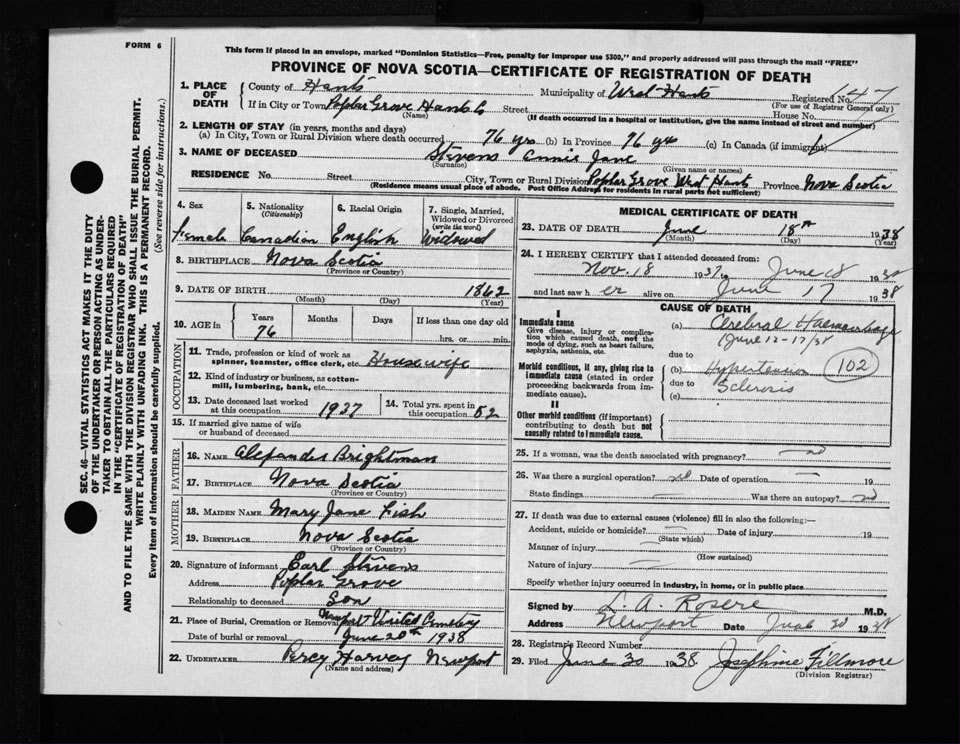 FORM 6
This form if placed in an envelope, marked "Dominion Statistics—Free, penalty for improper use $300," and properly addressed will pass through the mail "FREE"
PROVINCE OF NOVA SCOTIA—CERTIFICATE OF REGISTRATION OF DEATH
1. PLACE OF DEATH County of Hants Municipality of West Hants Registered No. 47
(For use of Registrar General only)
If in City or Town Poplar Grove Hants Co Street House No.
(Name) (If death occurred in a hospital or institution, give the name instead of street and number)
2. LENGTH OF STAY (in years, months and days)
(a) In City, Town or Rural Division where death occurred 76 yrs (b) In Province 76 yrs (c) In Canada (if immigrant)
3. NAME OF DECEASED Stevens Annie Jane
(Surname) (Given name or names)
RESIDENCE No. Street City, Town or Rural Division Poplar Grove West Hants Province Nova Scotia
(Residence means usual place of abode. Post Office Address for residents in rural parts not sufficient)
4. Sex 5. Nationality (Citizenship) 6. Racial Origin 7. Single, Married, Widowed or Divorced (write the word)
Female Canadian English Widowed
8. BIRTHPLACE Nova Scotia
(Province or Country)
9. DATE OF BIRTH 1862
(Month) (Day) (Year)
10. AGE in Years Months Days If less than one day old
76 hrs. or min.
OCCUPATION
11. Trade, profession or kind of work as spinner, teamster, office clerk, etc. Housewife
12. Kind of industry or business, as cotton-mill, lumbering, bank, etc.
13. Date deceased last worked at this occupation 1937 14. Total yrs. spent in this occupation 52
15. If married give name of wife or husband of deceased
FATHER
16. NAME Alexander Brightman
17. BIRTHPLACE Nova Scotia
(Province or Country)
MOTHER
18. MAIDEN NAME Mary Jane Fish
19. BIRTHPLACE Nova Scotia
(Province or Country)
20. Signature of informant Earl Stevens
Address Poplar Grove
Relationship to deceased Son
21. Place of Burial, Cremation or Removal Newport United Cemetery
Date of burial or removal June 20th 1938
22. UNDERTAKER Percy Harvey Newport
(Name and address)
MEDICAL CERTIFICATE OF DEATH
23. DATE OF DEATH June 18th 1938
(Month) (Day) (Year)
24. I HEREBY CERTIFY that I attended deceased from:
Nov. 18 1937 June 18 1938
and last saw her alive on June 17 1938
CAUSE OF DEATH
I
Immediate cause
Give disease, injury or complication which caused death, not the mode of dying, such as heart failure, asphyxia, asthenia, etc.
(a) Cerebral Haemorrhage
June 12-17/38
due to
Morbid conditions, if any, giving rise to immediate cause (stated in order proceeding backwards from immediate cause).
(b) Hypertension 102
due to Sclerosis
(c)
II
Other morbid conditions (if important) contributing to death but not causally related to immediate cause.
25. If a woman, was the death associated with pregnancy? no
26. Was there a surgical operation? no Date of operation 19
State findings Was there an autopsy? no
27. If death was due to external causes (violence) fill in also the following:—
Accident, suicide or homicide? Date of injury 19
(State which)
Manner of injury
(How sustained)
Nature of injury
Specify whether injury occurred in industry, in home, or in public place
Signed by L. A. Rosere M.D.
Address Newport Date June 20 1938
28. Registrar's Record Number
29. Filed June 30 1938 Josephine Fillmore
(Division Registrar)
SEC. 46—VITAL STATISTICS ACT MAKES IT THE DUTY
OF THE UNDERTAKER OR PERSON ACTING AS UNDER-
TAKER TO OBTAIN ALL THE PARTICULARS REQUIRED
IN THE "CERTIFICATE OF REGISTRATION OF DEATH"
AND TO FILE THE SAME WITH THE DIVISION REGISTRAR WHO SHALL ISSUE THE BURIAL PERMIT.
WRITE PLAINLY WITH UNFADING INK. THIS IS A PERMANENT RECORD.
Every item of information should be carefully supplied. (See reverse side for instructions.)